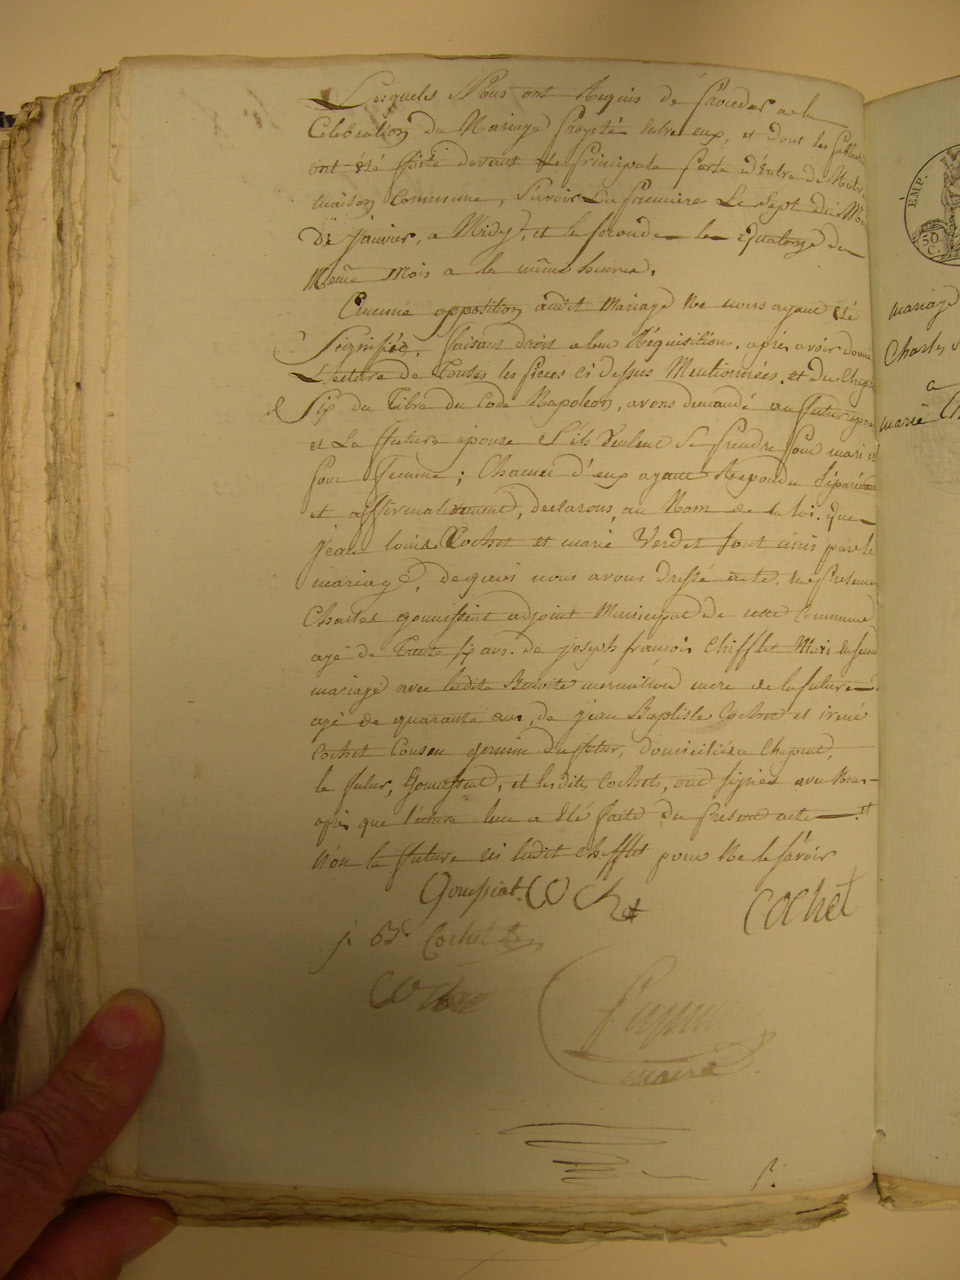 Lesquels Nous ont Requis de proceder a la
Celebration du Mariage projeté entre eux, et dont les publi
ont été faite devant la principale porte d'Entre de Notre
maison Commune, Savoir La première Le Sept du Moi
De Janvier, a Midy, et la seconde le Quatorze du
Même Mois a la même heure,
Aucune opposition audit Mariage Ne nous ayant été
Signifiée, faisant droit a leur Réquisition, après avoir donné
Lecture de Toutes les pieces ci dessus Mentionnées, et du Chapi
Six du Titre du Code Napoleon, avons demandé au futur epoux
et La future épouse S'ils Veulent Se prendre pour mari et
pour femme; Chacun d'eux ayant Repondu Séparément
et affirmativement, declarons, au Nom de la loi, que
Jean louis Cochet et marie Verdet sont unis par le
mariage, de quoi nous avons dressé acte. En presence
gouissiat adjoint Municipal de cette Commune
agé de Trente six ans. de joseph françois Chifflet Mari en second
mariage avec ladite Benoite mermillod mere de la future
agé de quarante ans, de jean Baptiste Cochet et irené
Cochet Cousin germin du futur, domicilié a
le futur, et lesdits Cochets, ont signés avec Nous
après que lecture leur a été faite du present acte et
Non la future ni ledit chifflet pour Ne le savoir
Gouissiat Cochet Cochet
j. Bt. Cochet
Cochet
maire
mariage
Charles
a
marie
EMP.
50
C.